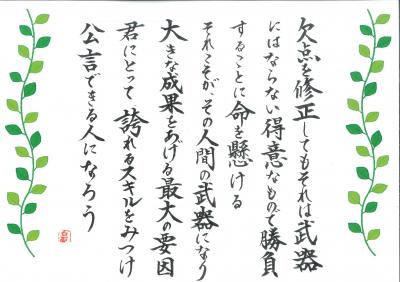 欠点を修正してもそれは武器
にはならない得意なもので勝負
することに命を懸ける
それこそが、その人間の武器になり
大きな成果をあげる最大の要因
君にとって誇れるスキルをみつけ
公言できる人になろう